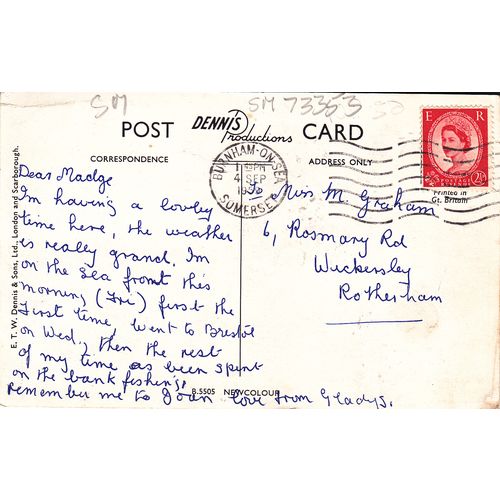 SM
SM 73353
POST DENNIS Productions CARD
CORRESPONDENCE
ADDRESS ONLY
E R
POSTAGE
2½D
Printed in
Gt. Britain
BURNHAM-ON-SEA
4 SEP
SOMERSET
E. T. W. Dennis & Sons, Ltd., London and Scarborough.
Dear Madge
I'm having a lovely
time here, the weather
is really grand. I'm
on the sea front this
morning (Fri) first the
first time, went to Bristol
on Wed, then the rest
of my time as been spent
on the bank fishing.
remember me to Joan love from Gladys.
Miss M. Graham
6, Rosmary Rd
Wickersley
Rotherham
B.5505 NEWCOLOUR